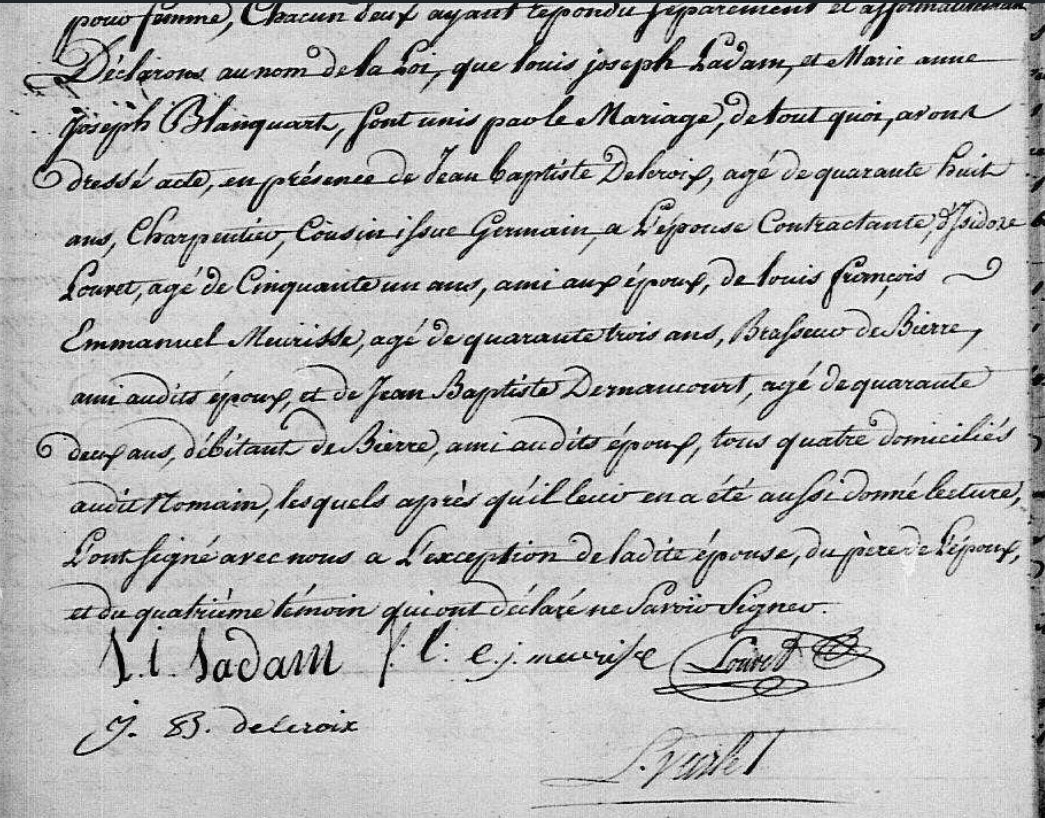 pour femme, Chacun d'eux ayant répondu séparément et affirmativement
Déclarons au nom de la Loi, que louis joseph Ladam, et Marie anne
Joseph Blanquart, sont unis par le Mariage, de tout quoi, avons
dressé acte, en présence de Jean baptiste Delcroix, agé de quarante huit
ans, Charpentier, Cousin issue Germain, a L'épouse Contractante, d'Isidore
Louvet, agé de Cinquante un ans, ami aux époux, de louis françois
Emmanuel Meurisse, agé de quarante trois ans, Brasseur de Bierre,
ami audits époux, et de Jean Baptiste Dernaucourt, agé de quarante
deux ans, débitant de Bierre, ami audits époux, tous quatre domiciliés
audit Nomain, lesquels après qu'il leur en a été aussi donné lecture,
L'ont signé avec nous a L'exception de ladite épouse, du père de L'époux,
et du quatriéme témoin qui ont déclaré ne Savoir Signer.
L. i. Ladam f: l: e. j. meurisse Louvet
j. B. delcroix